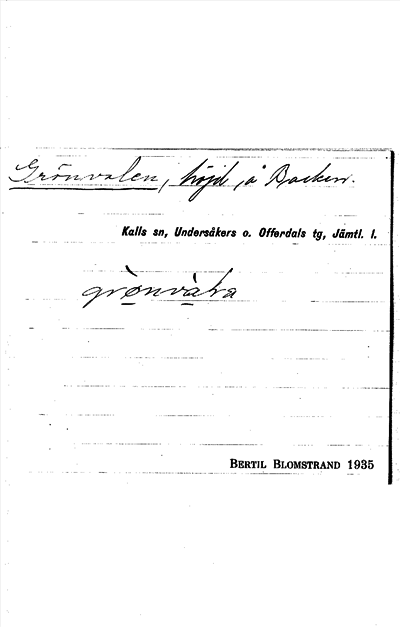 Grönvalen, höjd, å Backen.
Kalls sn, Undersåkers o. Offerdals tg, Jämtl. l.
grø̀nvàɫa
BERTIL BLOMSTRAND 1935